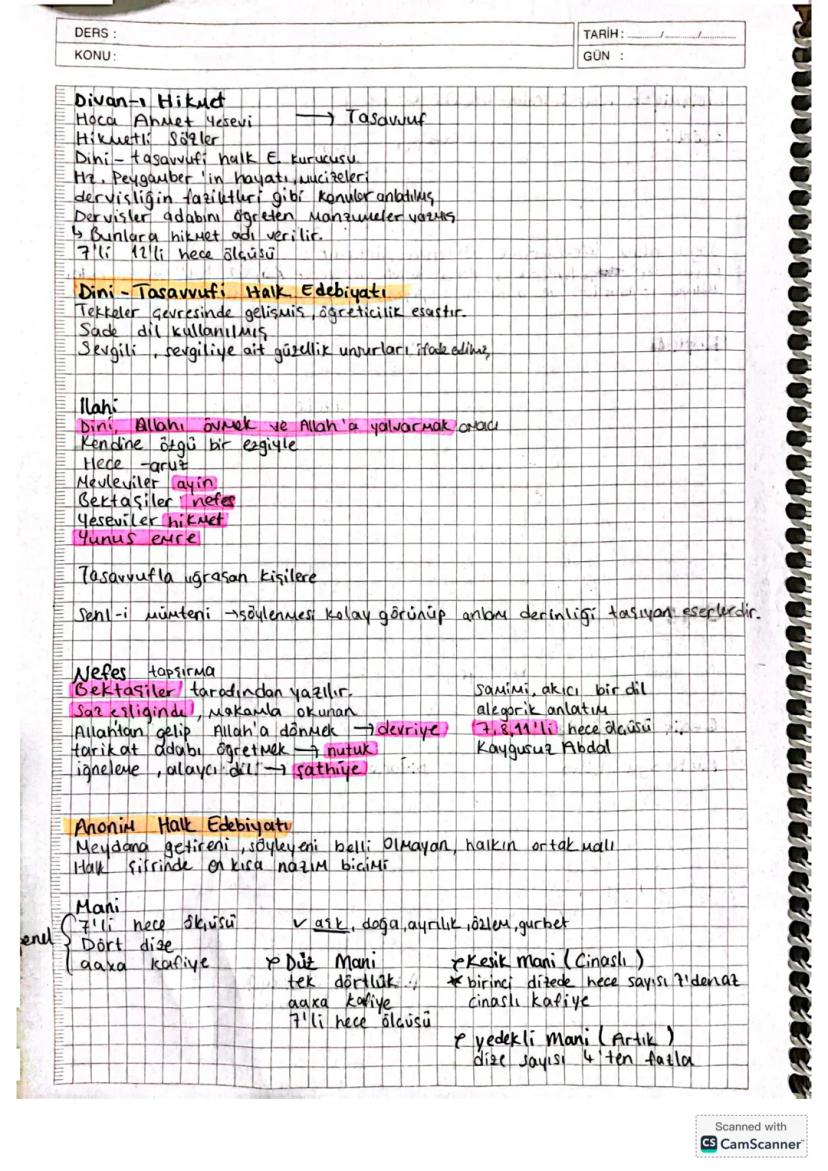 DERS :
KONU:
TARİH: ......../......../........
GÜN :
Divan-ı Hikmet
Hoca Ahmet Yesevi → Tasavvuf
Hikmetli Sözler
Dini - tasavvufi halk E. kurucusu.
Hz. Peygamber'in hayatı, mucizeleri
dervişliğin faziletleri gibi konular anlatılmış
Dervişler adabını öğreten manzumeler yazmış
↳ Bunlara hikmet adı verilir.
7'li 12'li hece ölçüsü
Dini - Tasavvufi Halk Edebiyatı
Tekkeler çevresinde gelişmiş, öğreticilik esastır.
Sade dil kullanılmış
Sevgili, sevgiliye ait güzellik unsurları ifade edilmiş
İlahi
Dini, Allahı övmek ve Allah'a yalvarmak amacı
Kendine özgü bir ezgiyle
Hece - aruz
Mevleviler ayin
Bektaşiler nefes
Yeseviler hikmet
Yunus emre
Tasavvufla uğraşan kişilere
Sehl-i mümteni → söylenmesi kolay görünüp anlam derinliği taşıyan eserlerdir.
Nefes tapşırma
Bektaşiler tarafından yazılır.
Saz eşliğinde, makamla okunan
Allahtan gelip Allah'a dönmek → devriye
tarikat adabı öğretmek → nutuk
iğneleme, alaycı dil → şathiye
samimi, akıcı bir dil
alegorik anlatım
7, 8, 11'li hece ölçüsü
Kaygusuz Abdal
Anonim Halk Edebiyatı
Meydana getireni, söyleyeni belli olmayan, halkın ortak malı
Halk şiirinde en kısa nazım biçimi
Mani
7'li hece ölçüsü ✓ aşk, doğa, ayrılık, özlem, gurbet
enel { Dört dize
aaxa kafiye
Düz Mani
tek dörtlük
aaxa kafiye
7'li hece ölçüsü
Kesik Mani (Cinaslı)
* birinci dizede hece sayısı 7'den az
cinaslı kafiye
yedekli Mani (Artık)
dize sayısı 4'ten fazla
Scanned with
CS CamScanner